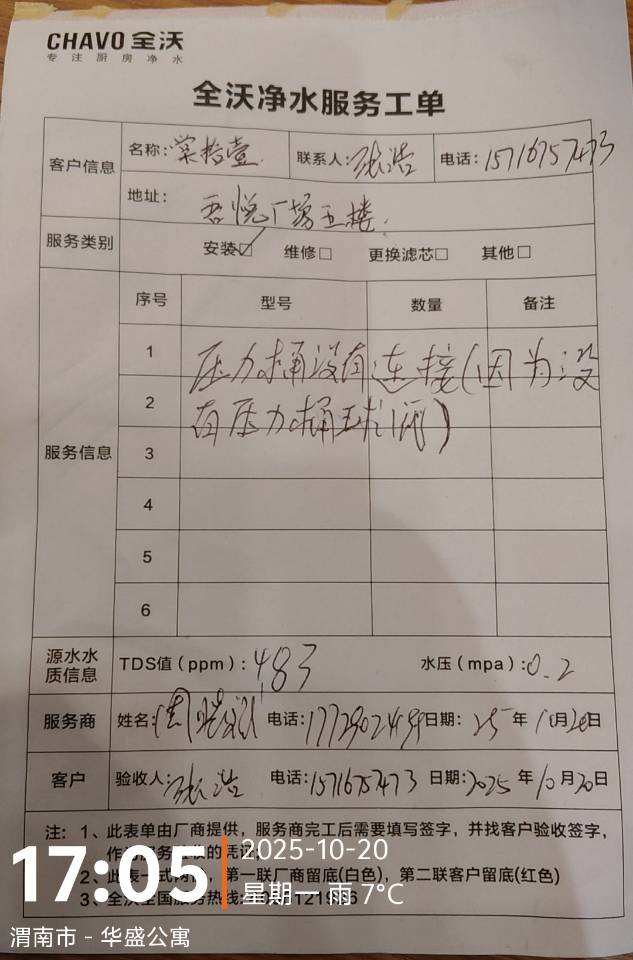 CHAVO 全沃
专注厨房净水
全沃净水服务工单
客户信息
名称：棠拾壹
联系人：张浩
电话：15716757473
地址：吾悦广场五楼
服务类别
安装☑ 维修□ 更换滤芯□ 其他□
服务信息
序号 型号 数量 备注
1
压力桶没有连接(因为没
2
有压力桶球阀)
3
4
5
6
源水水质信息
TDS值（ppm）：483
水压（mpa）：0.2
服务商
姓名：周
电话：
日期：25年10月20日
客户
验收人：张浩
电话：15716757473
日期：2025年10月20日
注：1、此表单由厂商提供，服务商完工后需要填写签字，并找客户验收签字，
的凭证；
2、此表一式两 第一联厂商留底(白色)，第二联客户留底(红色)
3、全沃全国服务热线：
17:05
2025-10-20
星期一 雨 7℃
渭南市 - 华盛公寓